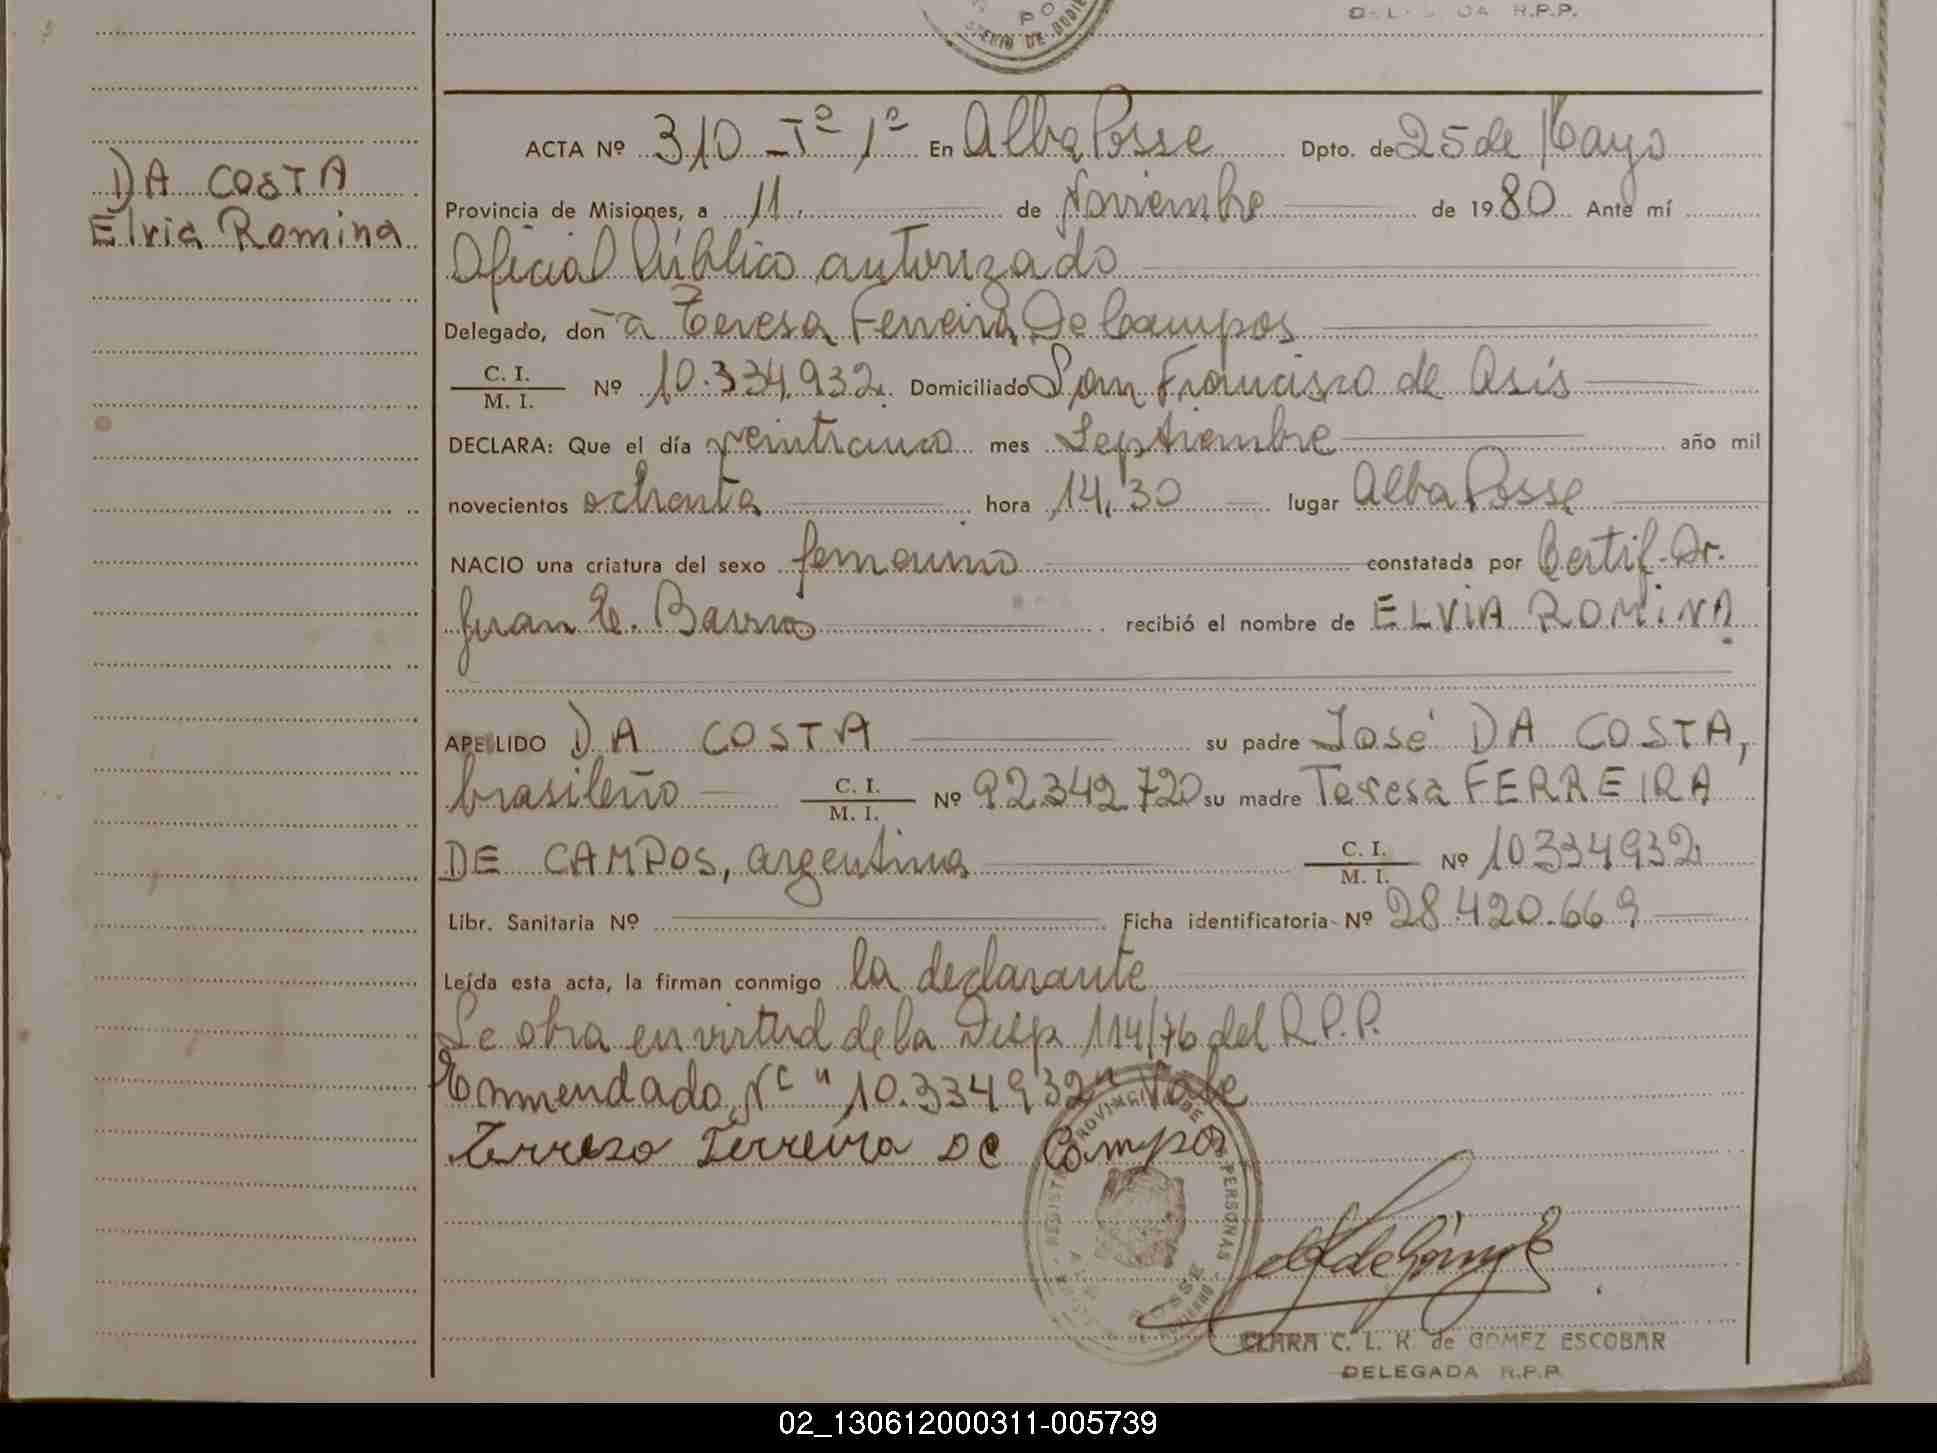 DELEGADA R.P.P.
DA COSTA
Elvia Romina
ACTA Nº 310 - Tº 1º En Alba Posse Dpto. de 25 de Mayo
Provincia de Misiones, a 11 de Noviembre de 1980 Ante mí
Oficial Público autorizado
Delegado, don a Teresa Ferreira De Campos
C. I. / M. I. Nº 10.334.932. Domiciliado San Francisco de Asís
DECLARA: Que el día veinticinco mes Septiembre año mil
novecientos ochenta hora 14,30 lugar Alba Posse
NACIO una criatura del sexo femenino constatada por Certif. Dr.
Juan C. Barrios recibió el nombre de ELVIA ROMINA
APELLIDO DA COSTA su padre José DA COSTA,
brasileño C. I. / M. I. Nº 92342720 su madre Teresa FERREIRA
DE CAMPOS, argentina C. I. / M. I. Nº 10334932
Libr. Sanitaria Nº Ficha identificatoria Nº 28.420.669
Leída esta acta, la firman conmigo la declarante
Se obra en virtud de la Disp. 114/76 del R.P.P.
Enmendado Nº "10.334932" Vale
Terreza Ferreira De Campos
POSSE
CLARA C. L. K. de GOMEZ ESCOBAR
DELEGADA R.P.P.
02_130612000311-005739